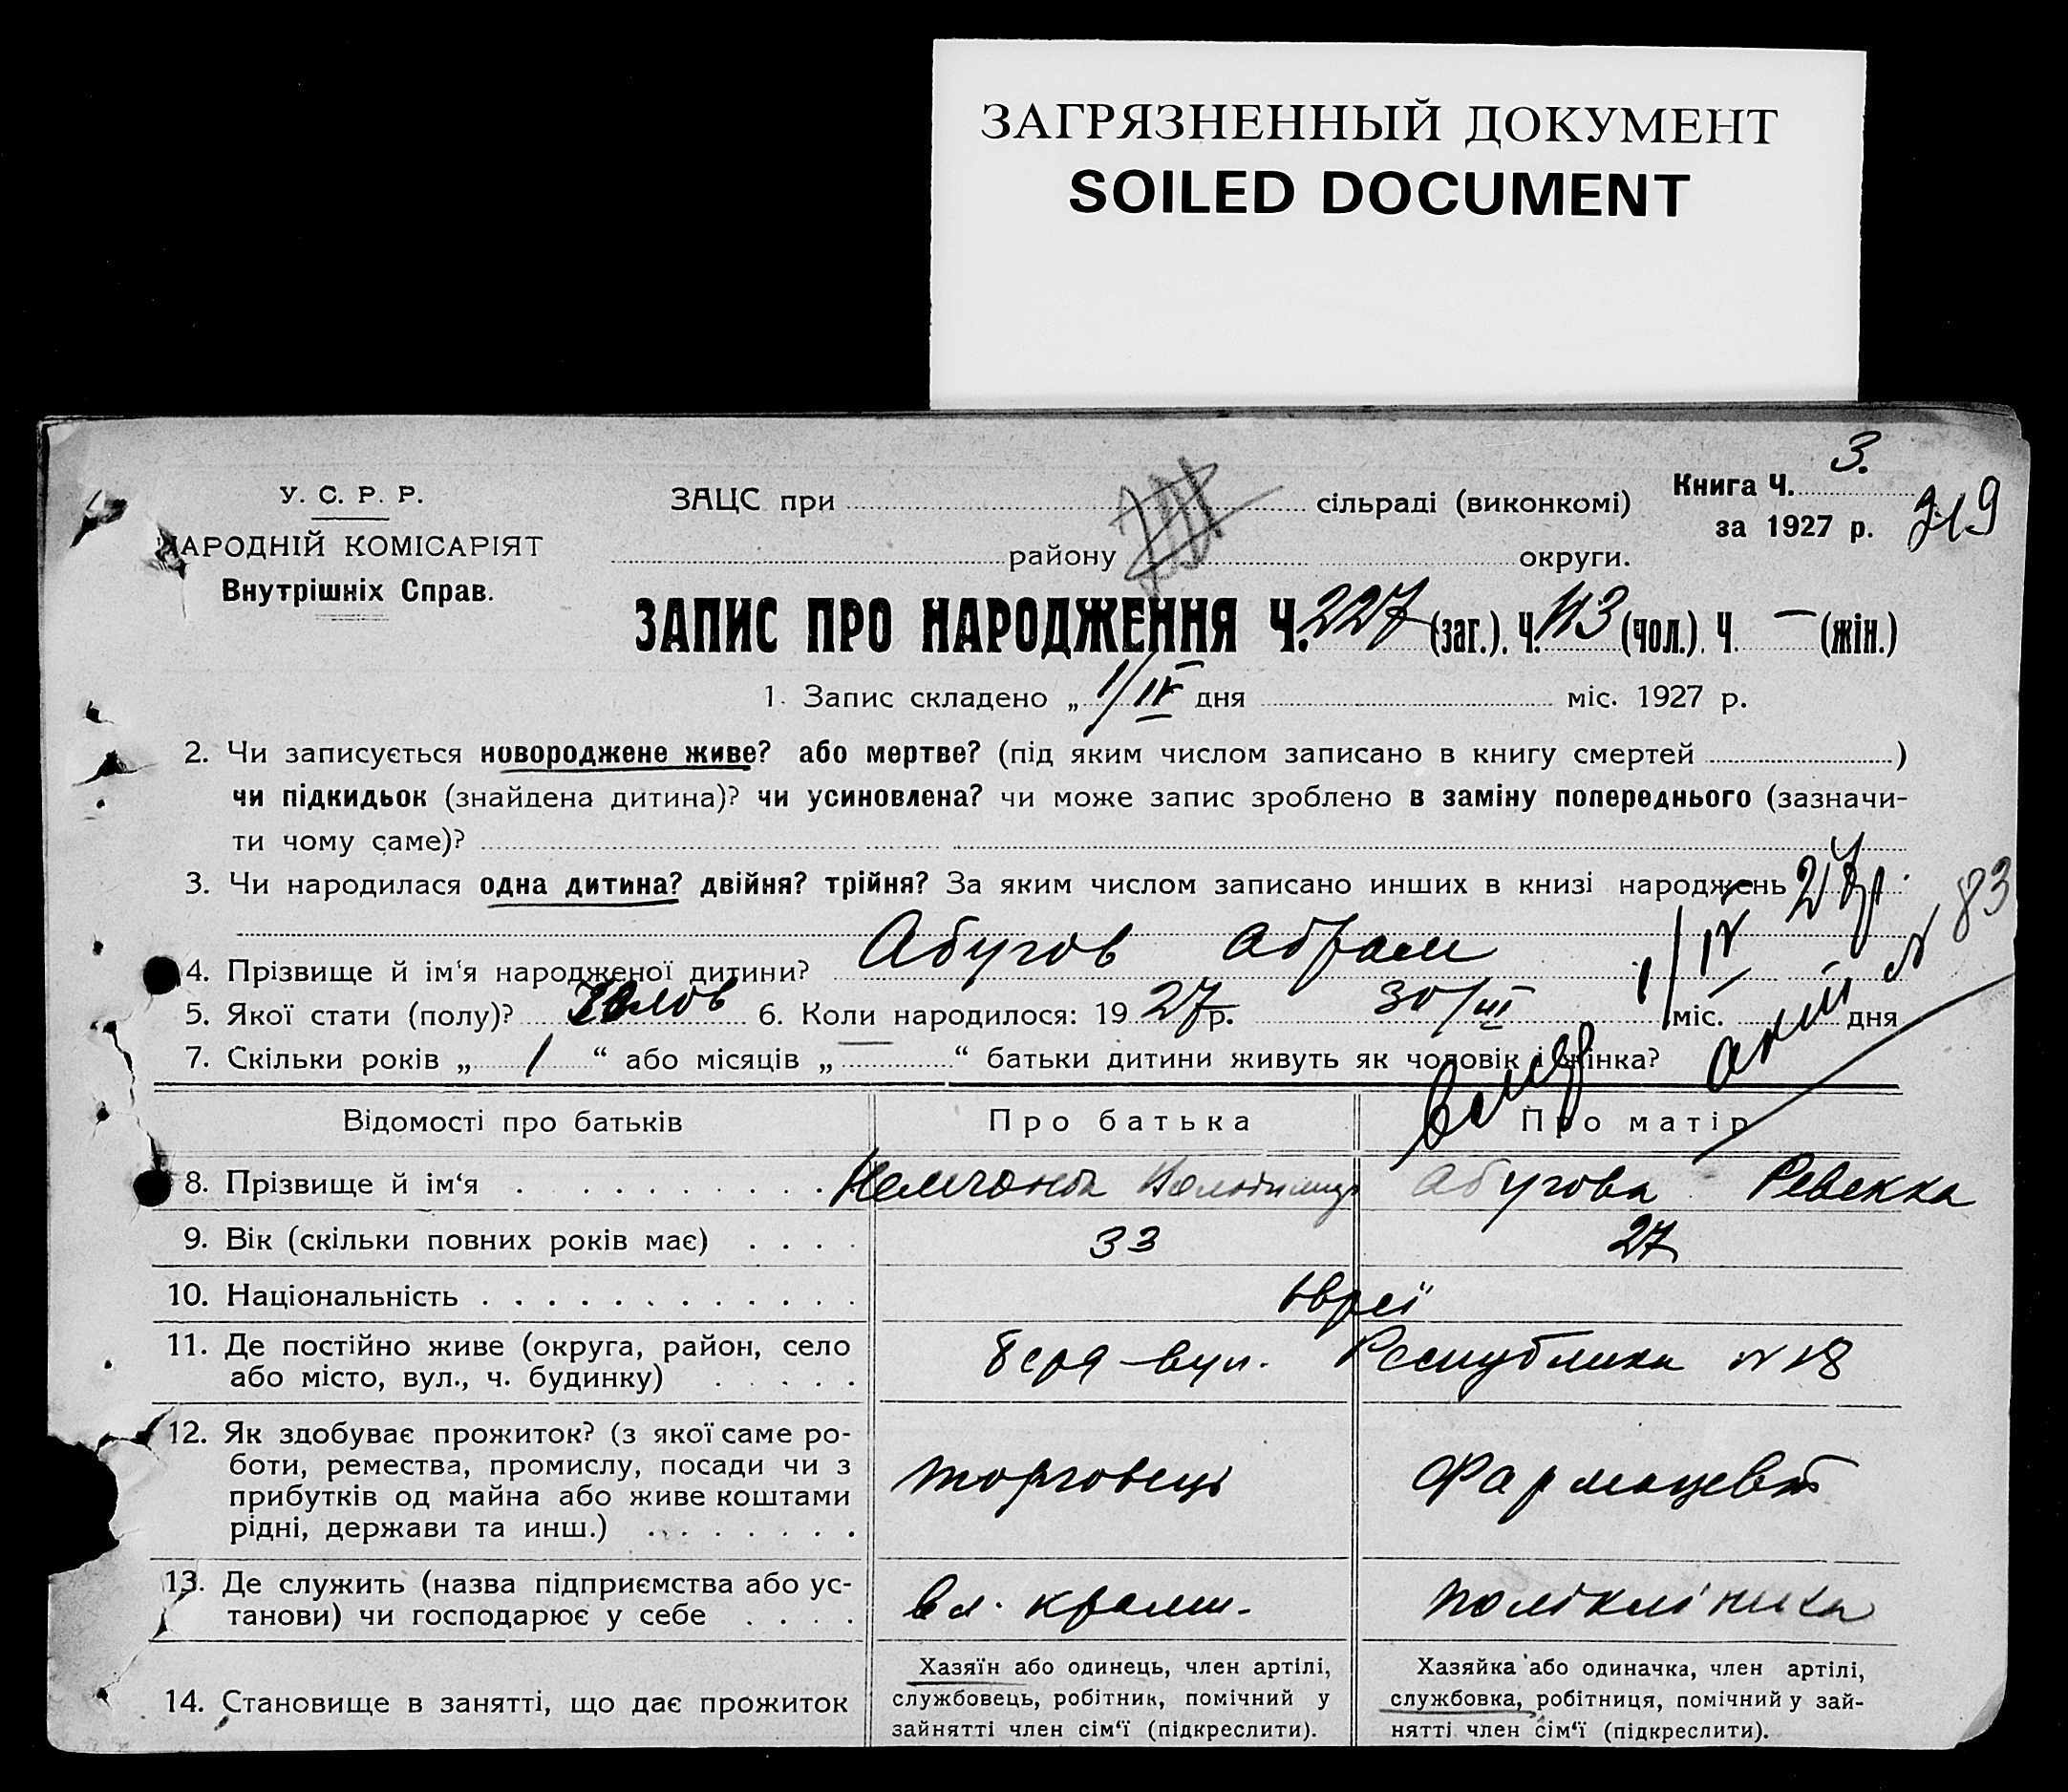 ЗАГРЯЗНЕННЫЙ ДОКУМЕНТ
SOILED DOCUMENT
У. С. Р. Р.
НАРОДНІЙ КОМІСАРІЯТ
Внутрішніх Справ.
ЗАЦС при сільраді (виконкомі)
району округи.
Книга Ч. 3.
за 1927 р.
319
ЗАПИС ПРО НАРОДЖЕННЯ Ч. 227 (заг.). Ч. 113 (чол.). Ч. — (жін.)
1. Запис складено „ 1/IV дня міс. 1927 р.
2. Чи записується новороджене живе? або мертве? (під яким числом записано в книгу смертей )
чи підкидьок (знайдена дитина)? чи усиновлена? чи може запис зроблено в заміну попереднього (зазначи-
ти чому саме)?
3. Чи народилася одна дитина? двійня? трійня? За яким числом записано инших в книзі народжень
4. Прізвище й ім'я народженої дитини? Абугов Абрам
5. Якої стати (полу)? 6. Коли народилося: 19 27 р. 30/III міс. дня
7. Скільки років „ 1 “ або місяців „ — “ батьки дитини живуть як чоловік і жінка?
1/IV 27 р. № 83
Відомості про батьків Про батька Про матір
8. Прізвище й ім‘я Володимир Абугова Ревекка
9. Вік (скільки повних років має) 33 27
10. Національність Євреї
11. Де постійно живе (округа, район, село
або місто, вул., ч. будинку) вул. Республики № 18
12. Як здобуває прожиток? (з якої саме ро-
боти, ремества, промислу, посади чи з
прибутків од майна або живе коштами
рідні, держави та инш.) торговець Фармацевт
13. Де служить (назва підприємства або ус-
танови) чи господарює у себе вл. крамн. поліклініка
14. Становище в занятті, що дає прожиток
Хазяїн або одинець, член артілі,
службовець, робітник, помічний у
зайнятті член сім‘ї (підкреслити).
Хазяйка або одиначка, член артілі,
службовка, робітниця, помічний у зай-
нятті член сім‘ї (підкреслити).